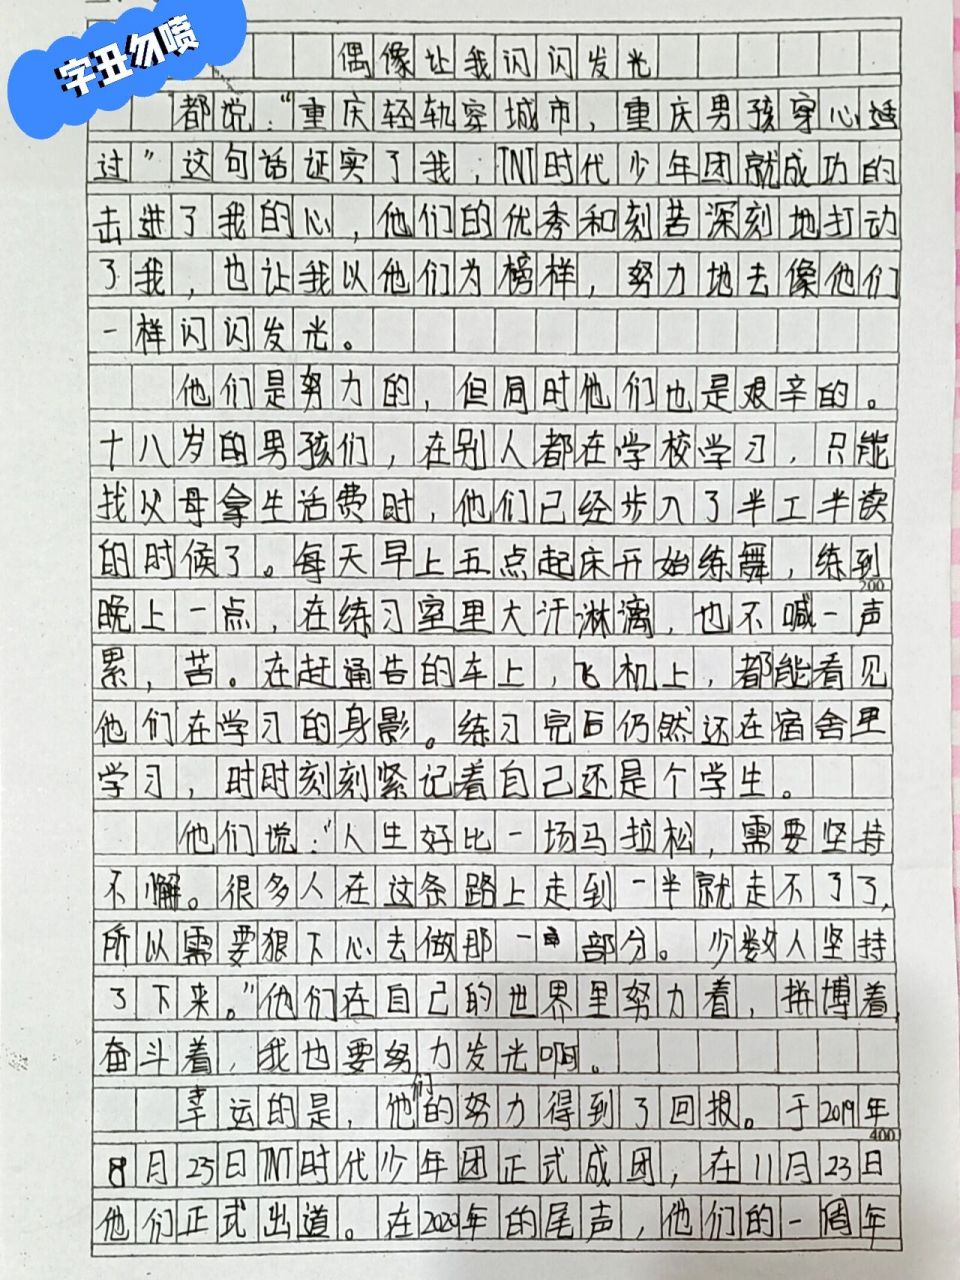 字丑勿喷
偶像让我闪闪发光
都说:“重庆轻轨穿城市,重庆男孩穿心透
过”这句话证实了我,TNT时代少年团就成功的
击进了我的心,他们的优秀和刻苦深刻地打动
了我,也让我以他们为榜样,努力地去像他们
一样闪闪发光。
他们是努力的,但同时他们也是艰辛的。
十八岁的男孩们,在别人都在学校学习,只能
找父母拿生活费时,他们已经步入了半工半读
的时候了。每天早上五点起床开始练舞,练到
200
晚上一点,在练习室里大汗淋漓,也不喊一声
累,苦。在赶通告的车上,飞机上,都能看见
他们在学习的身影。练习完后仍然还在宿舍里
学习,时时刻刻紧记着自己还是个学生。
他们说:“人生好比一场马拉松,需要坚持
不懈。很多人在这条路上走到一半就走不了了,
所以需要狠下心去做那一部分。少数人坚持
了下来。”他们在自己的世界里努力着,拼博着,
奋斗着,我也要努力发光啊。
幸运的是,他们的努力得到了回报。于2019年
400
8月23日TNT时代少年团正式成团,在11月23日
他们正式出道。在2020年的尾声,他们的一周年